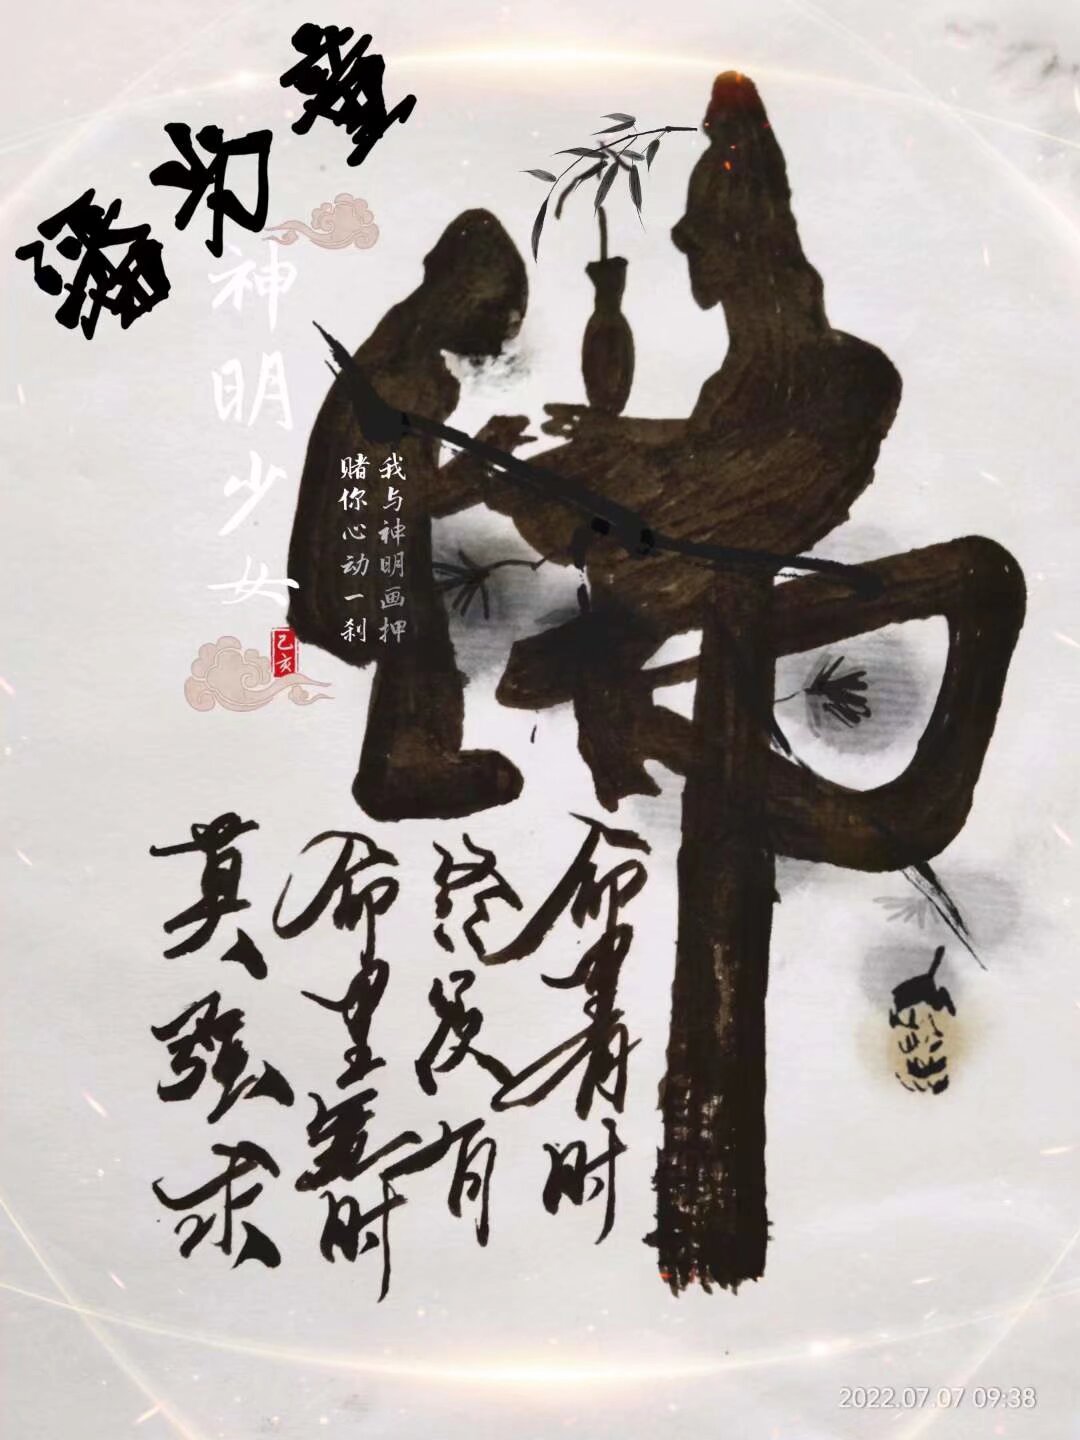 佛
神明少女
我与神明画押
赌你心动一刹
己亥
命里有时
终须有
命里无时
莫强求
2022.07.07 09:38